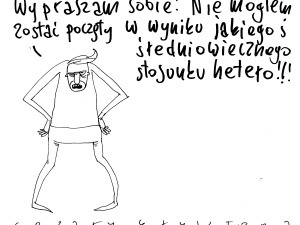 Wypraszam sobie! Nie mogłem
zostać poczęty w wyniku jakiegoś
średniowiecznego
stosunku hetero!!!